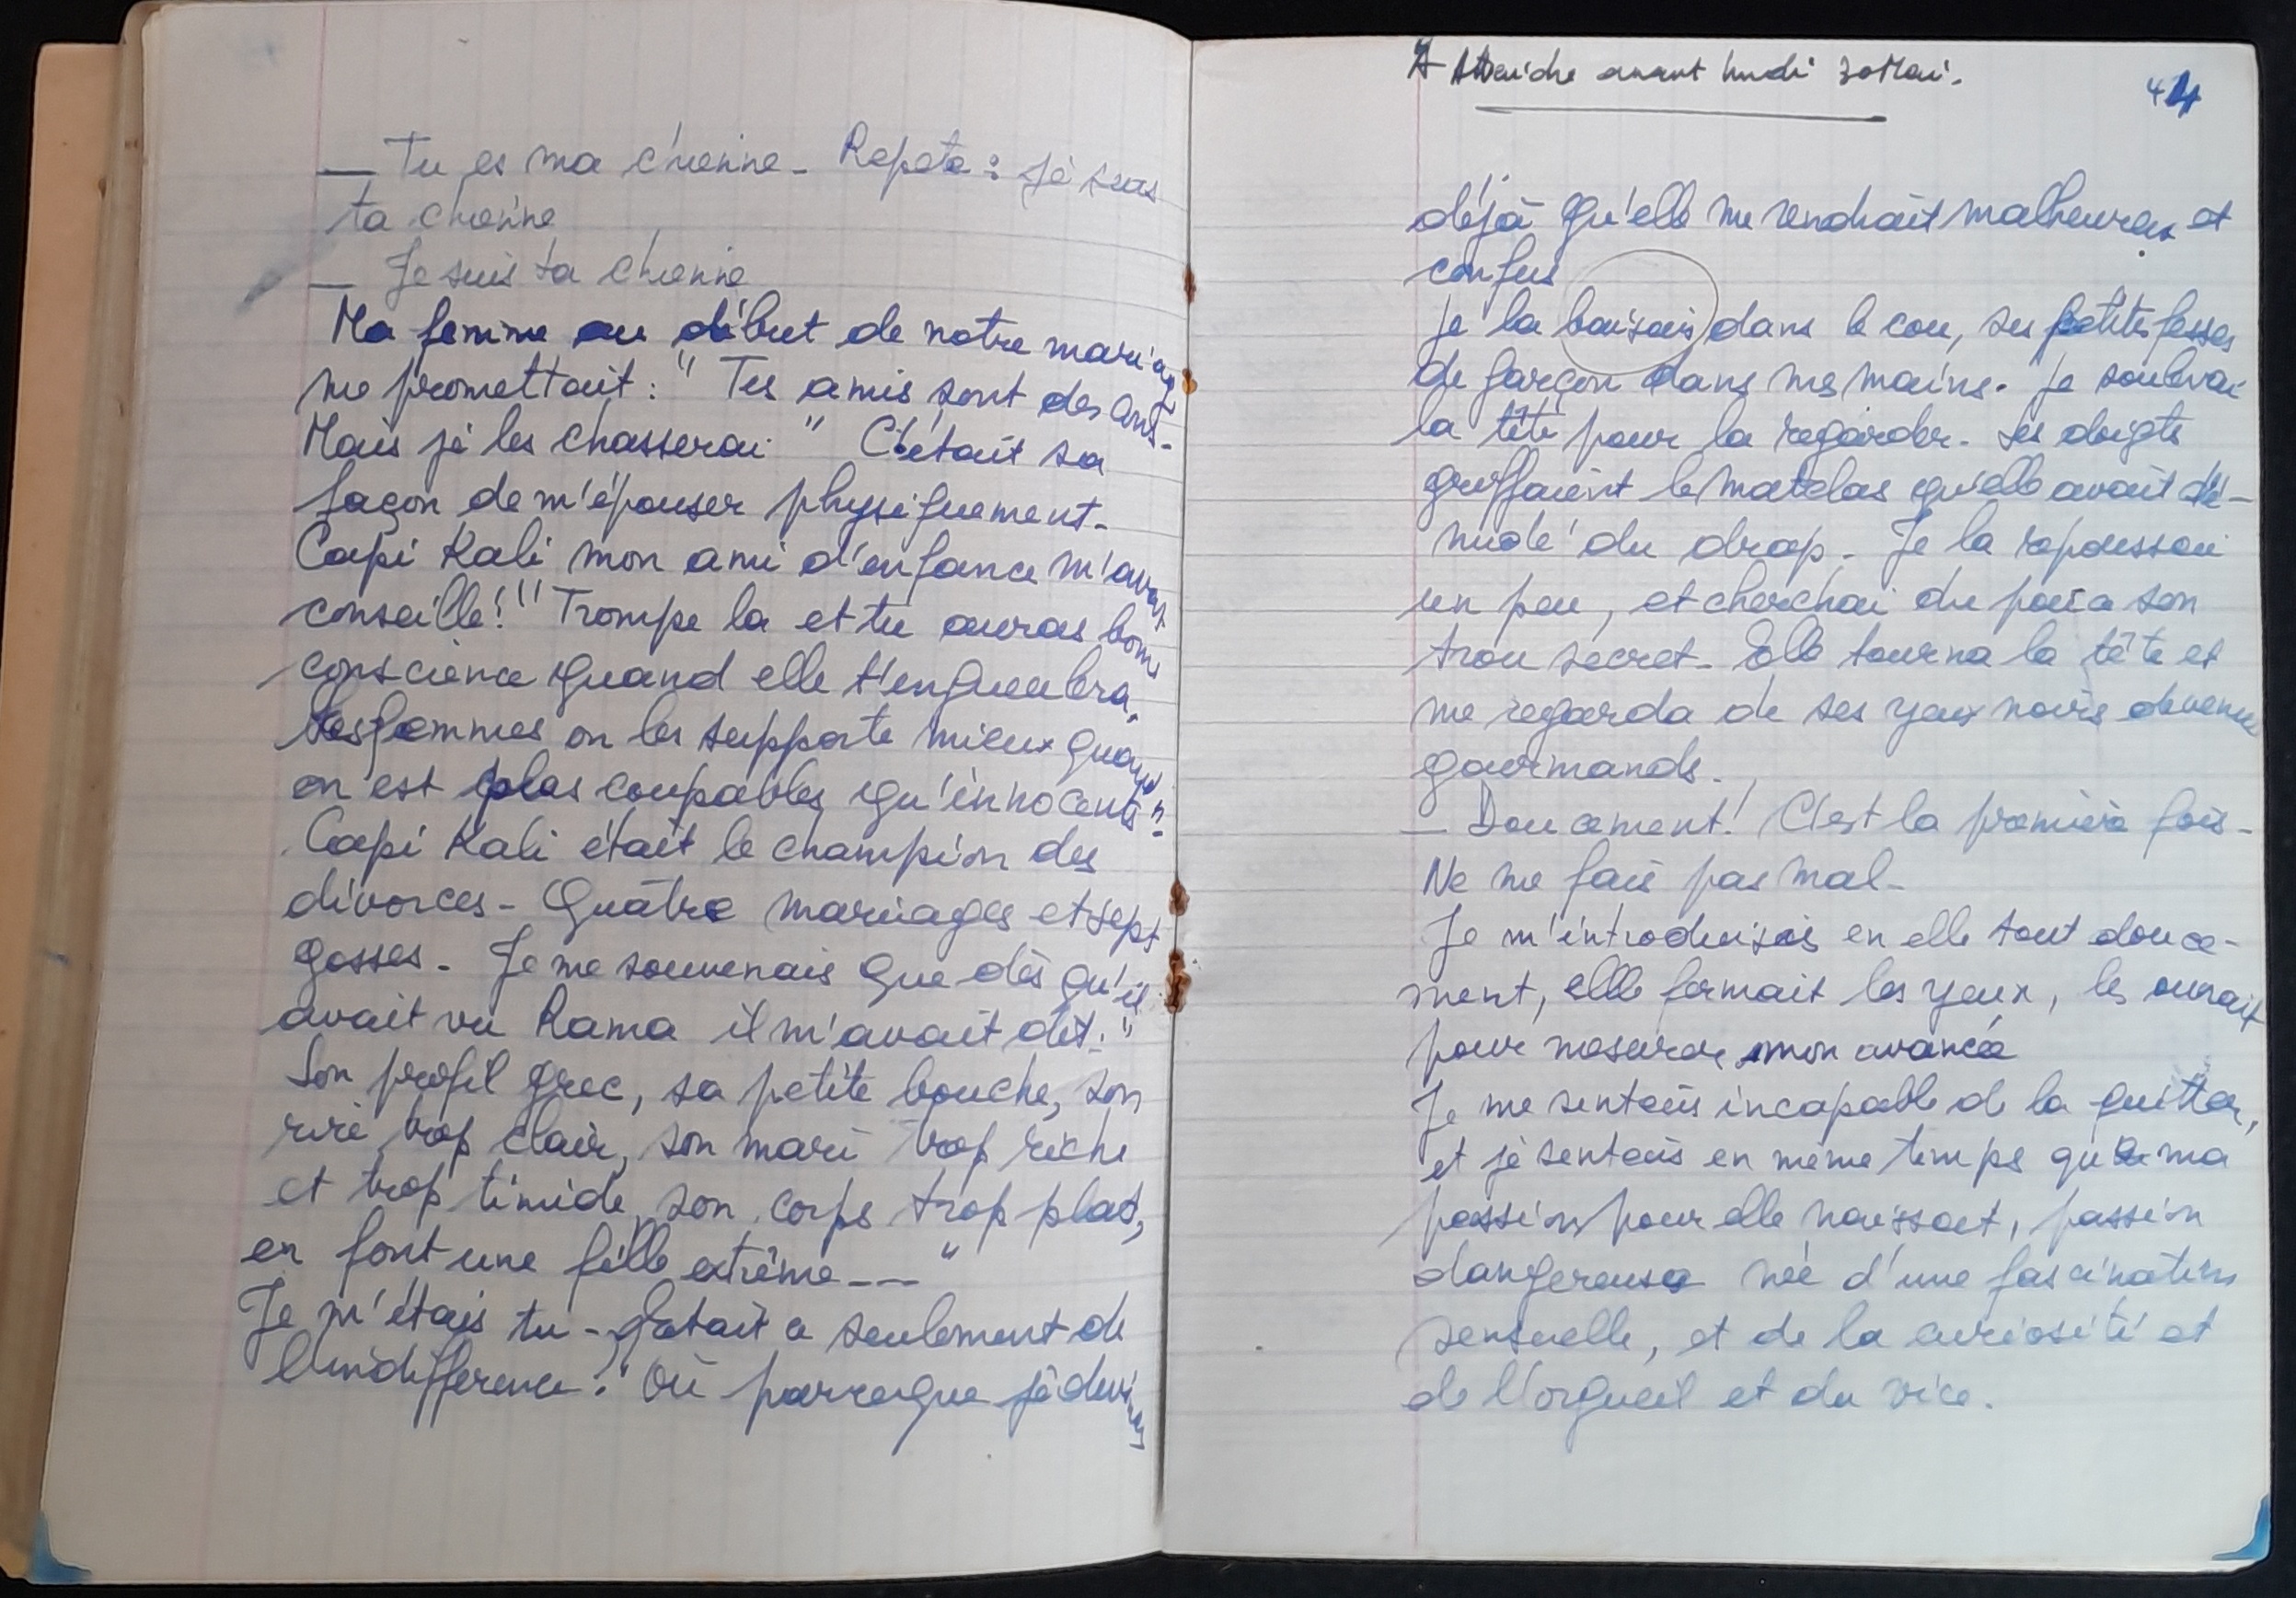 — Tu es ma chienne - Repete : je suis
ta chienne
— Je suis ta chienne
Ma femme au début de notre mariag
me promettait : " Tes amis sont des
Mais je les chasserai " C'était sa
façon de m'épouser physiquement -
Capi Kali mon ami d'enfance m'avait
conseillé : " Trompe la et tu auras bonne
conscience quand elle t'engueulera,
les femmes on les supporte mieux quand
on est plus coupables qu'innocents " -
Capi Kali était le champion des
divorces - Quatre mariages et sept
gosses - Je me souvenais que dès qu'il
avait vu Rama il m'avait dit : "
Son profil grec, sa petite bouche, son
rire trop clair, son mari trop riche
et trop timide, son corps trop plat,
en font une fille extrême --- "
Je m'étais tu - était ce seulement de
l'indifférence ? Ou parceque je devinais
A Atteindre avant lundi 30 Mai.
44
déjà qu'elle me rendrait malheureux et
confus
Je la baisais dans le cou, ses petites fesses
de garçon dans mes mains. Je soulevai
la tête pour la regarder - Ses doigts
griffaient le matelas qu'elle avait dé-
nudé du drap - Je la repoussai
un peu, et cherchai du
trou secret - Elle tourna la tête et
me regarda de ses yeux noirs devenus
gourmands -
— Doucement ! C'est la première fois -
Ne me fais pas mal -
Je m'introduisais en elle tout douce-
ment, elle fermait les yeux, les ouvrait
pour mesurer mon avancée
Je me sentais incapable de la quitter,
et je sentais en même temps que ma
passion pour elle naissait, passion
dangereuse née d'une fascination
sensuelle, et de la curiosité et
de l'orgueil et du vice.